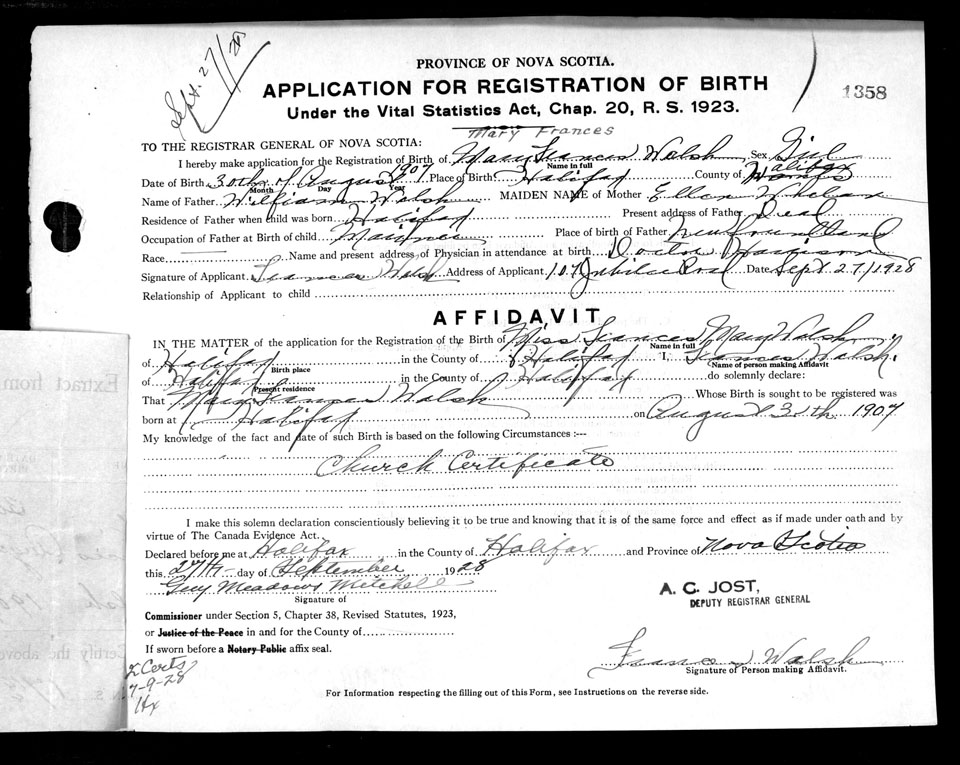 Sept. 27/28
PROVINCE OF NOVA SCOTIA.
APPLICATION FOR REGISTRATION OF BIRTH
1358
Under the Vital Statistics Act, Chap. 20, R. S. 1923.
Mary Frances
TO THE REGISTRAR GENERAL OF NOVA SCOTIA:
I hereby make application for the Registration of Birth of Mary Frances Walsh Sex Girl
Name in full
Date of Birth 30th of August 1907 Place of Birth Halifax County of Halifax
Month Day Year
Name of Father William Walsh MAIDEN NAME of Mother Ellen Whelan
Residence of Father when child was born Halifax Present address of Father Dead
Occupation of Father at Birth of child Mariner Place of birth of Father Newfoundland
Race Name and present address of Physician in attendance at birth Doctor
Signature of Applicant Frances Walsh Address of Applicant 107 Jubilee Road Date Sept. 27/1928
Relationship of Applicant to child
AFFIDAVIT
IN THE MATTER of the application for the Registration of the Birth of Miss Frances Mary Walsh
Name in full
of Halifax in the County of Halifax I, Frances Walsh
Birth place Name of person making Affidavit
of Halifax in the County of Halifax do solemnly declare:
Present residence
That Mary Frances Walsh Whose Birth is sought to be registered was
born at Halifax on August 30th 1907
My knowledge of the fact and date of such Birth is based on the following Circumstances :—
Church Certificate
I make this solemn declaration conscientiously believing it to be true and knowing that it is of the same force and effect as if made under oath and by
virtue of The Canada Evidence Act.
Declared before me at Halifax in the County of Halifax and Province of Nova Scotia
this 27th day of September 1928
Guy Meadows Mitchell
Signature of
A. C. JOST,
DEPUTY REGISTRAR GENERAL
Commissioner under Section 5, Chapter 38, Revised Statutes, 1923,
or Justice of the Peace in and for the County of
If sworn before a Notary Public affix seal.
Frances Walsh
Signature of Person making Affidavit.
2 Certs
7-9-28
Hx
For Information respecting the filling out of this Form, see Instructions on the reverse side.
Extract from
Certify the above